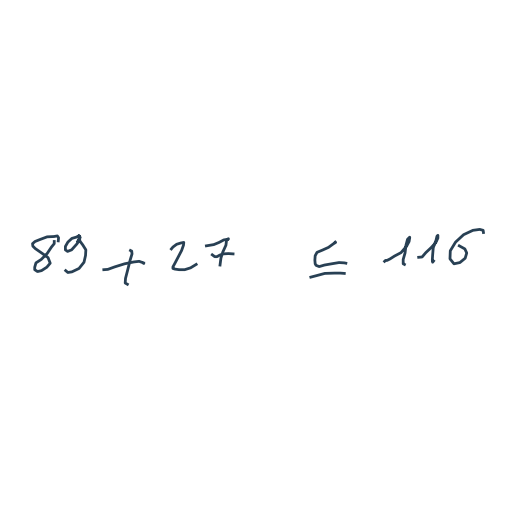 89 + 27 ≤ 116